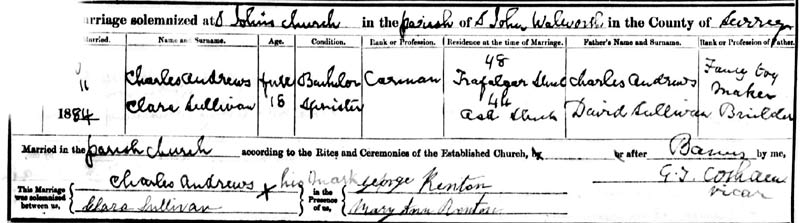 Marriage solemnized at S Johns church in the parish of S John Walworth in the County of Surrey
Married. Name and Surname. Age. Condition. Rank or Profession. Residence at the time of Marriage. Father's Name and Surname. Rank or Profession of Father.
11 Charles Andrews full Bachelor Carman 48 Trafalgar Street Charles Andrews Fancy Toy Maker
1884 Clara Sullivan 18 Spinister 44 Ash Street David Sullivan Builder
Married in the parish church according to the Rites and Ceremonies of the Established Church, by or after Banns by me,
This Marriage was solemnized between us, Charles Andrews X his Mark in the Presence of us, George Renton G. T. Cotham
Clara Sullivan Mary Ann Renton Vicar